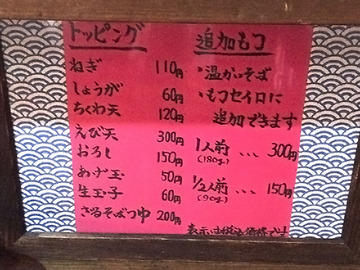 トッピング
ねぎ 110円
しょうが 60円
ちくわ天 120円
えび天 300円
おろし 150円
あげ玉 50円
生玉子 60円
ざるそばつゆ 200円
追加もつ
・温かいそば
・もつセイロに
追加できます
1人前 … 300円
(180g)
1/2人前 … 150円
(90g)
表示は税込価格です